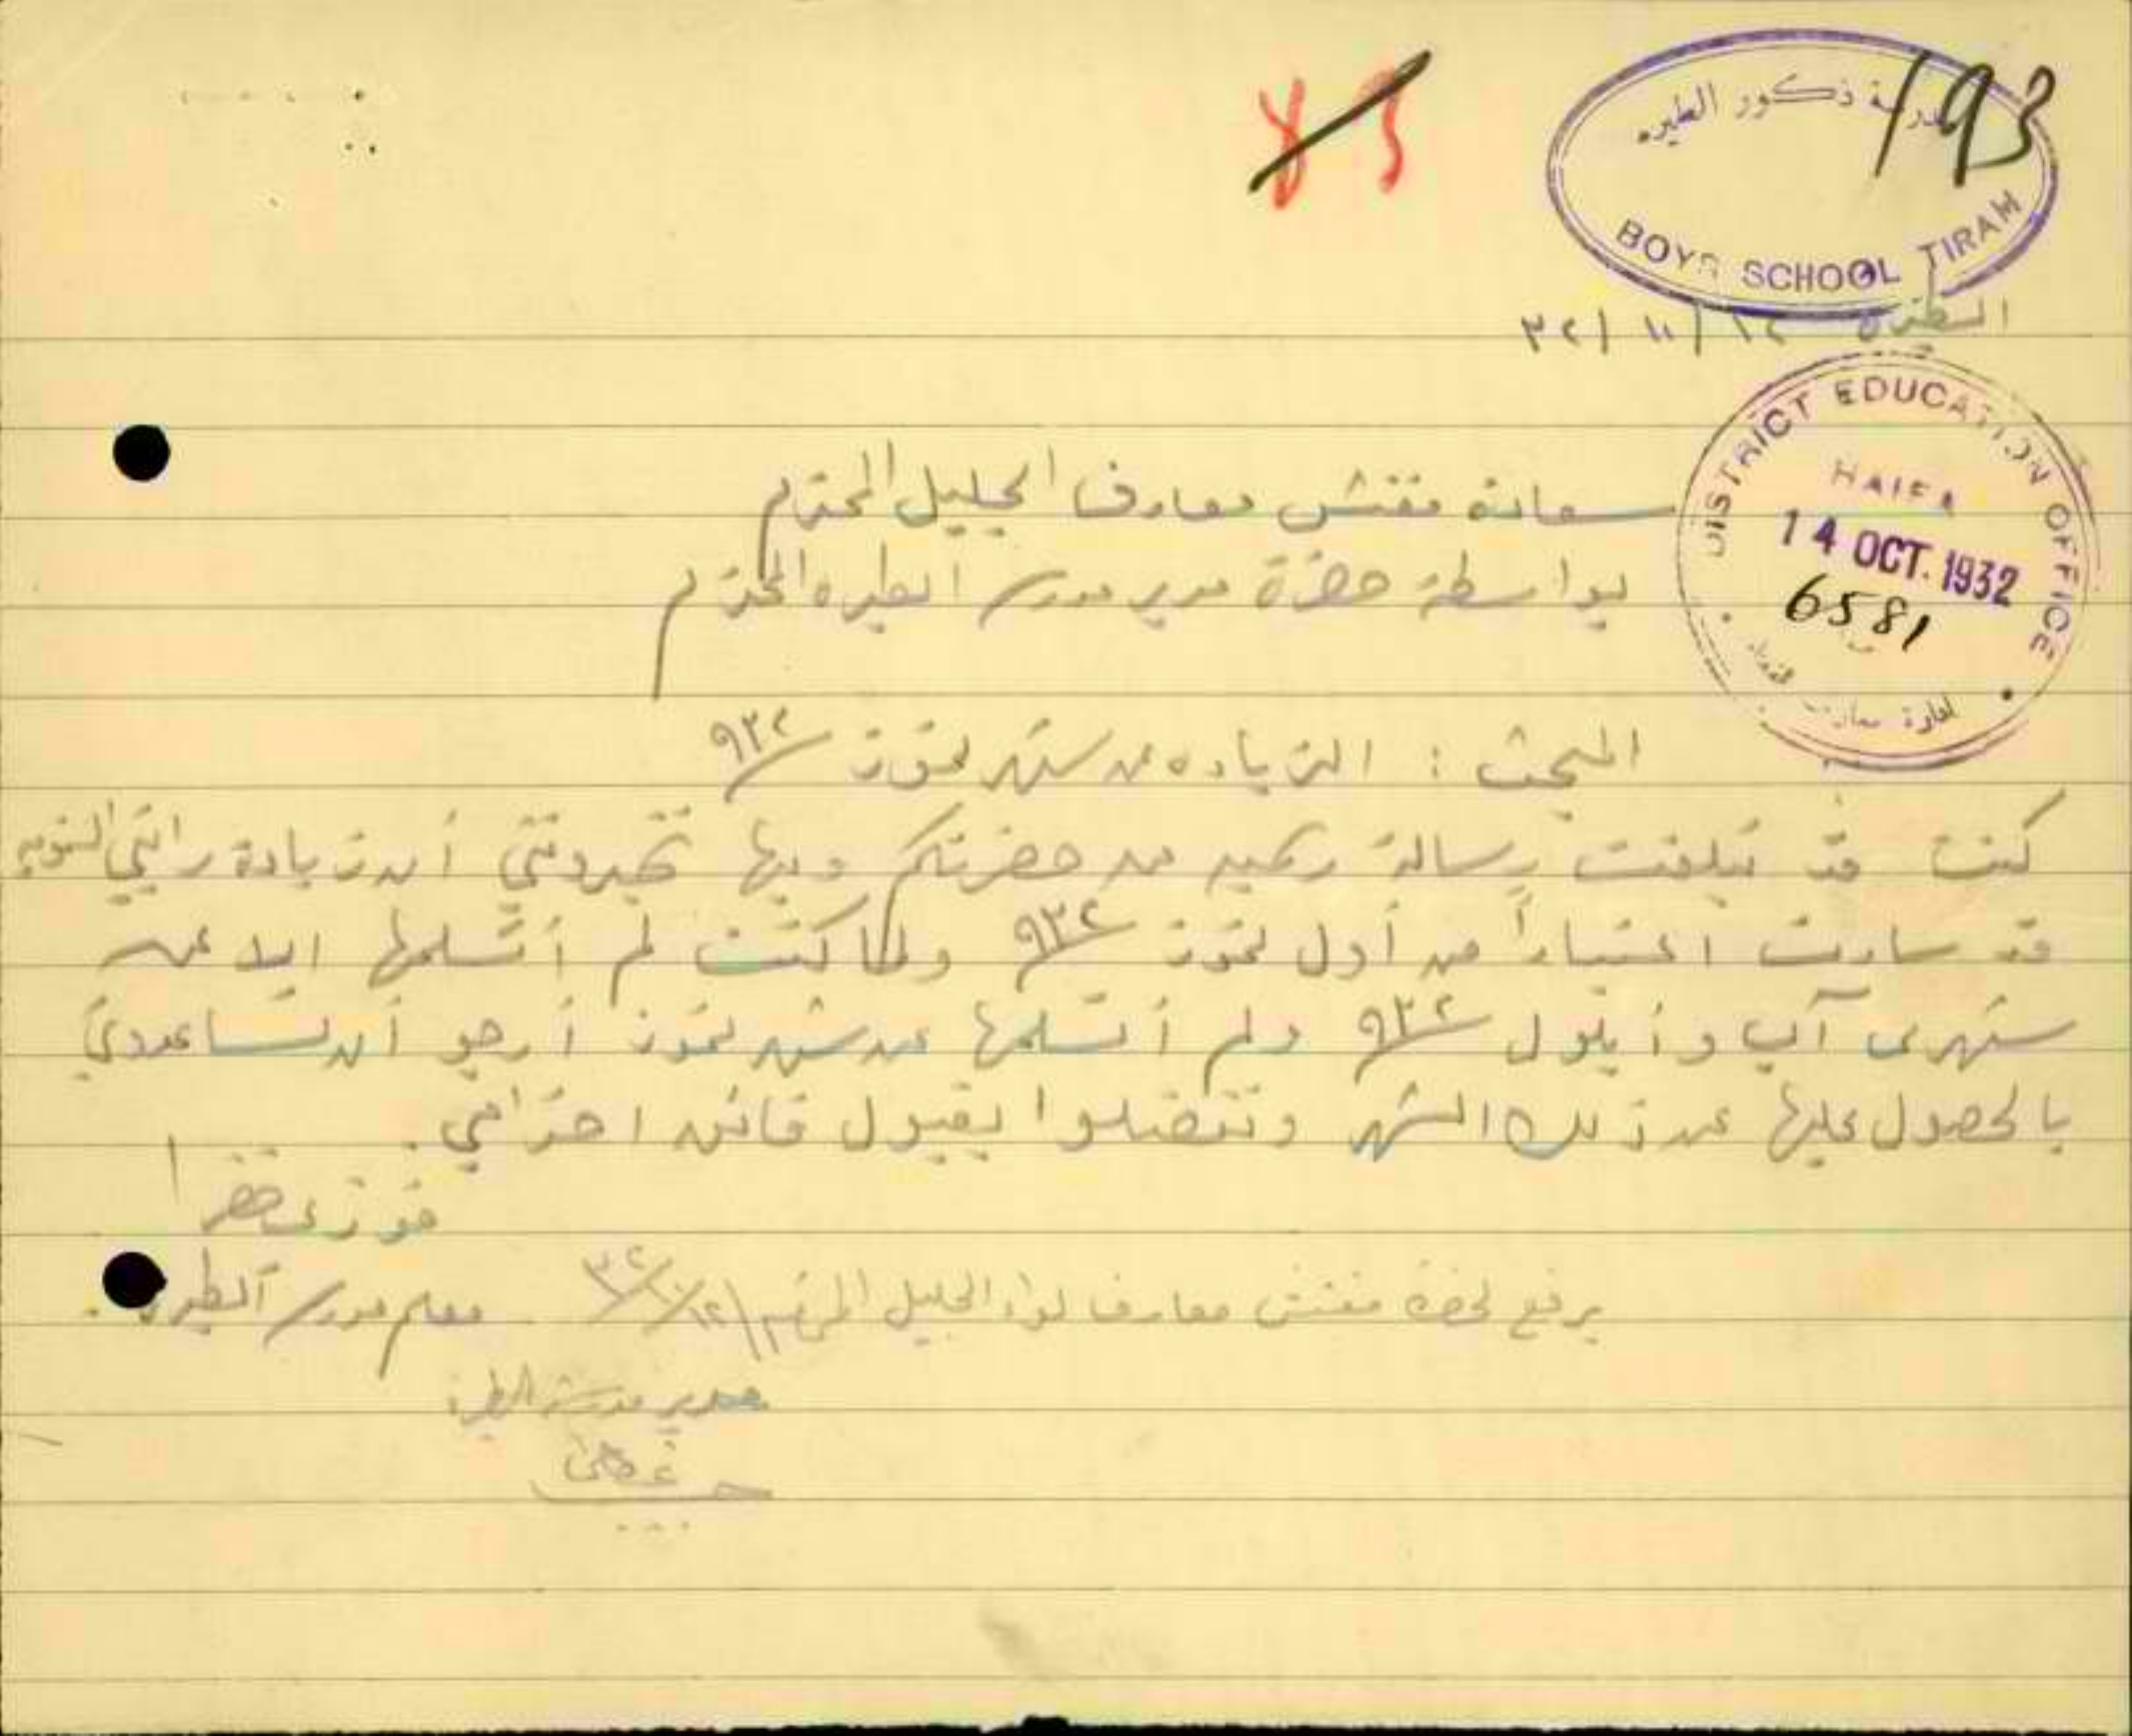 193
مدرسة ذكور الطيره
BOYS SCHOOL TIRAH
الطيره ١٢/١٠/٣٢
DISTRICT EDUCATION OFFICE
HAIFA
14 OCT. 1932
6581
سعادة مفتش معارف الجليل المحترم
بواسطة حضرة مدير مدرسة الطيره المحترم
المبحث : الزياده عن شهر تموز ٩٣٢
كنت قد تبلغت رسالة رسميه من حضرتكم وبها تخبرونني أن زيادة راتبي السنويه
قد سارت اعتباراً من أول تموز ٩٣٢ ولما كنت لم أتسلمها الا عن
شهرى آب وأيلول ٩٣٢ ولم أتسلمها عن شهر تموز أرجو أن تساعدوني
بالحصول عليها عن ذلك الشهر وتفضلوا بقبول فائق احترامي.
فوزى خضرا
معلم مدرسة الطيره.
يرفع لحضرة مفتش معارف لواء الجليل المحترم ١٢/١٠/٣٢
مدير مدرسة الطيرة